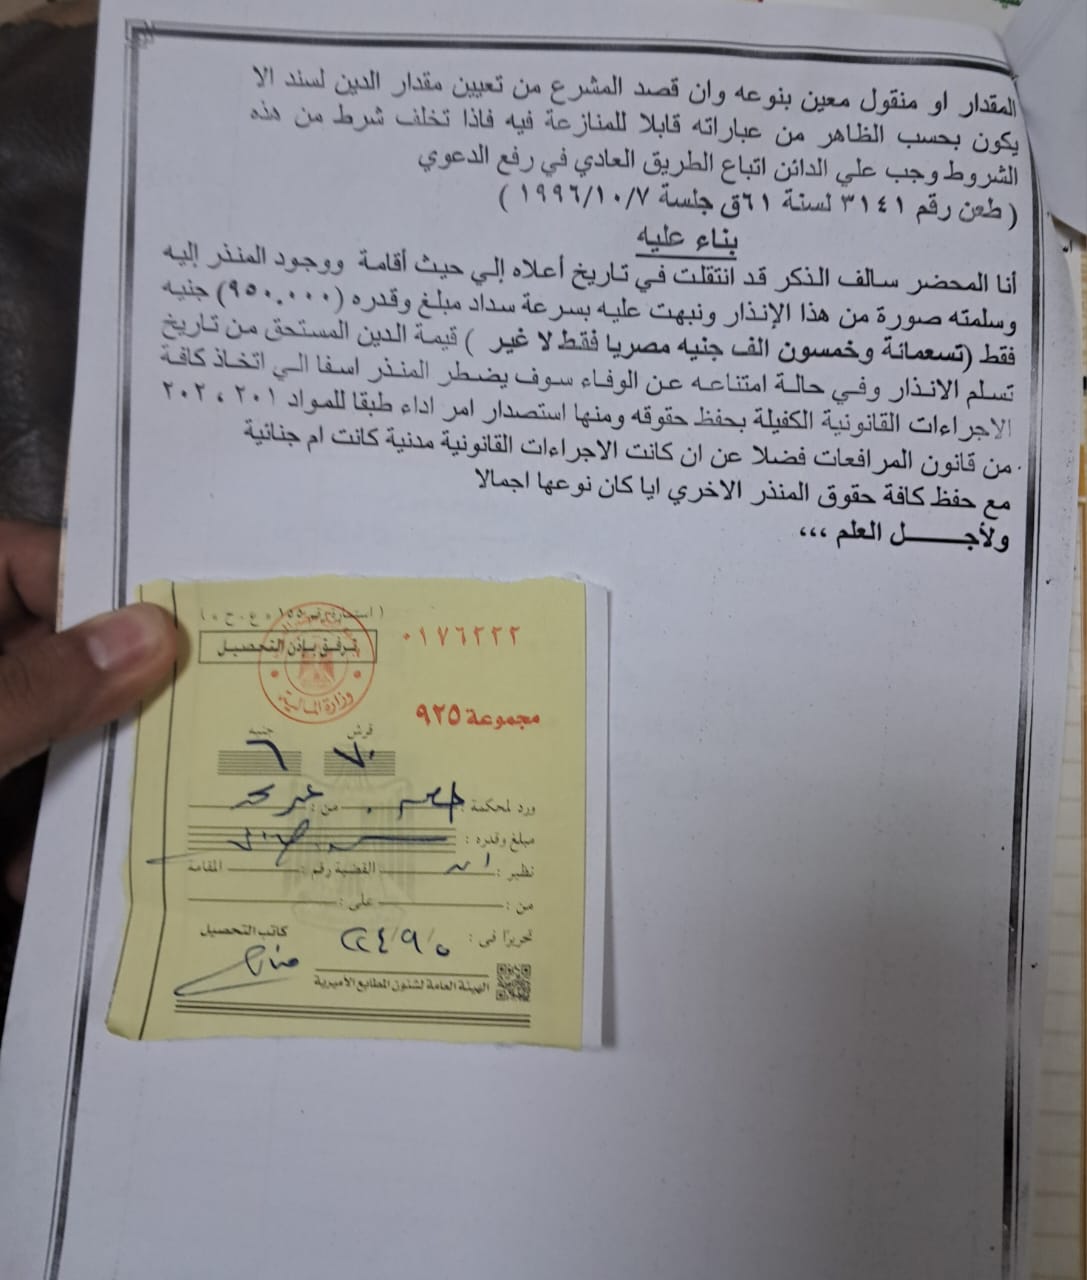 المقدار او منقول معين بنوعه وان قصد المشرع من تعيين مقدار الدين لسند الا
يكون بحسب الظاهر من عباراته قابلا للمنازعة فيه فاذا تخلف شرط من هذه
الشروط وجب علي الدائن اتباع الطريق العادي في رفع الدعوي
( طعن رقم ٣١٤١ لسنة ٦١ق جلسة ١٩٩٦/١٠/٧ )
بناء عليه
أنا المحضر سالف الذكر قد انتقلت في تاريخ أعلاه إلي حيث أقامة ووجود المنذر إليه
وسلمته صورة من هذا الإنذار ونبهت عليه بسرعة سداد مبلغ وقدره (٩٥٠.٠٠٠) جنيه
فقط (تسعمائة وخمسون الف جنيه مصريا فقط لا غير ) قيمة الدين المستحق من تاريخ
تسلم الانذار وفي حالة امتناعه عن الوفاء سوف يضطر المنذر اسفا الي اتخاذ كافة
الاجراءات القانونية الكفيلة بحفظ حقوقه ومنها استصدار امر اداء طبقا للمواد ٢٠١ ، ٢٠٢
من قانون المرافعات فضلا عن ان كانت الاجراءات القانونية مدنية كانت ام جنائية
مع حفظ كافة حقوق المنذر الاخري ايا كان نوعها اجمالا
ولأجـــــل العلم ،،،
( استمارة رقم ١٥٥ ع . ح )
٠١٧٦٢٢٢
ترفق بإذن التحصيل
وزارة المالية
مجموعة ٩٢٥
قرش جنيه
٧٠ ٦
ورد لمحكمة : من :
مبلغ وقدره :
نظير : القضية رقم : المقامة
من : على :
تحريرًا فى :
كاتب التحصيل
الهيئة العامة لشئون المطابع الأميرية